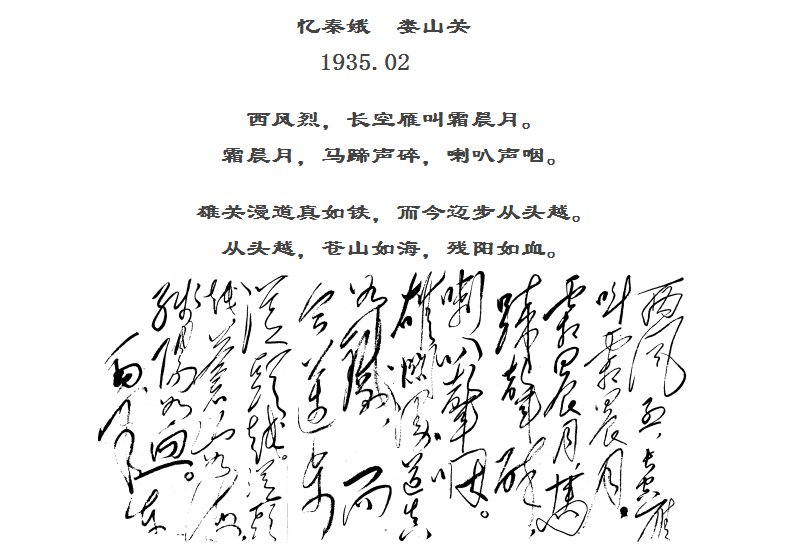 忆秦娥 娄山关
1935.02
西风烈，长空雁叫霜晨月。
霜晨月，马蹄声碎，喇叭声咽。
雄关漫道真如铁，而今迈步从头越。
从头越，苍山如海，残阳如血。
西风烈，長空雁
叫霜晨月。
霜晨月，馬
蹄聲碎，
喇叭聲咽。
雄關漫道真
如鐵，而
今邁步
從頭越。從頭
越，蒼山如海，
殘陽如血。